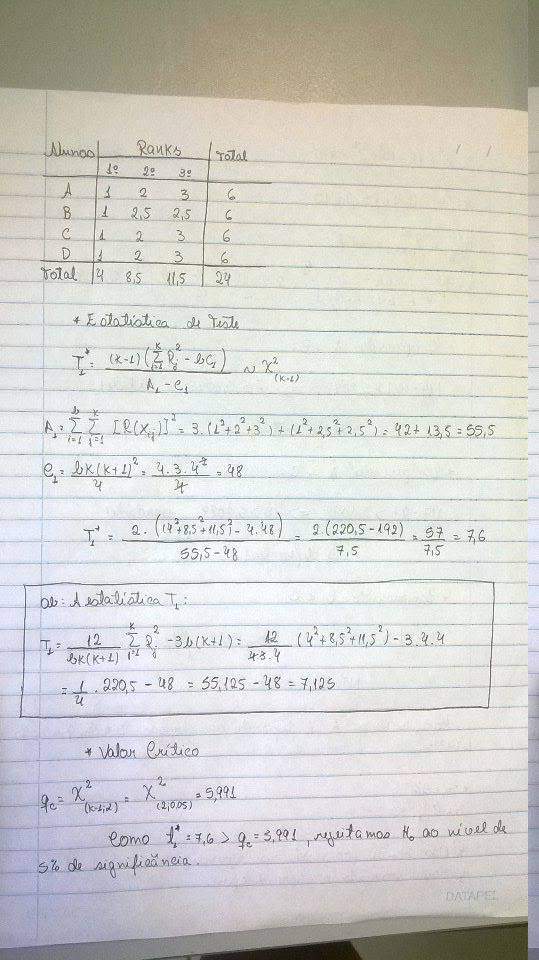 Alunos Ranks Total
1º 2º 3º
A 1 2 3 6
B 1 2,5 2,5 6
C 1 2 3 6
D 1 2 3 6
Total 4 8,5 11,5 24
* Estatística de Teste
T₁* = (k-1)(Σ_{i=1}^{k} R_j² - bC₁) / (A₁ - C₁) ~ χ²_(k-1)
A₁ = Σ_{i=1}^{b} Σ_{j=1}^{k} [R(X_ij)]² = 3.(1²+2²+3²) + (1²+2,5²+2,5²) = 42 + 13,5 = 55,5
C₁ = bk(k+1)²/4 = 4.3.4²/4 = 48
T₁* = 2.(4²+8,5²+11,5² - 4.48) / (55,5-48) = 2(220,5-192)/7,5 = 57/7,5 = 7,6
ob: A estatística T₁:
T₁ = 12/(bk(k+1)) Σ_{i=1}^{k} R_j² - 3b(k+1) = 12/(4.3.4) (4²+8,5²+11,5²) - 3.4.4
= 1/4 . 220,5 - 48 = 55,125 - 48 = 7,125
* Valor Crítico
q_c = χ²_(k-1,α) = χ²_(2,0,05) = 5,991
Como t₁* = 7,6 > q_c = 5,991, rejeitamos H₀ ao nível de
5% de significância.
DATAPEL